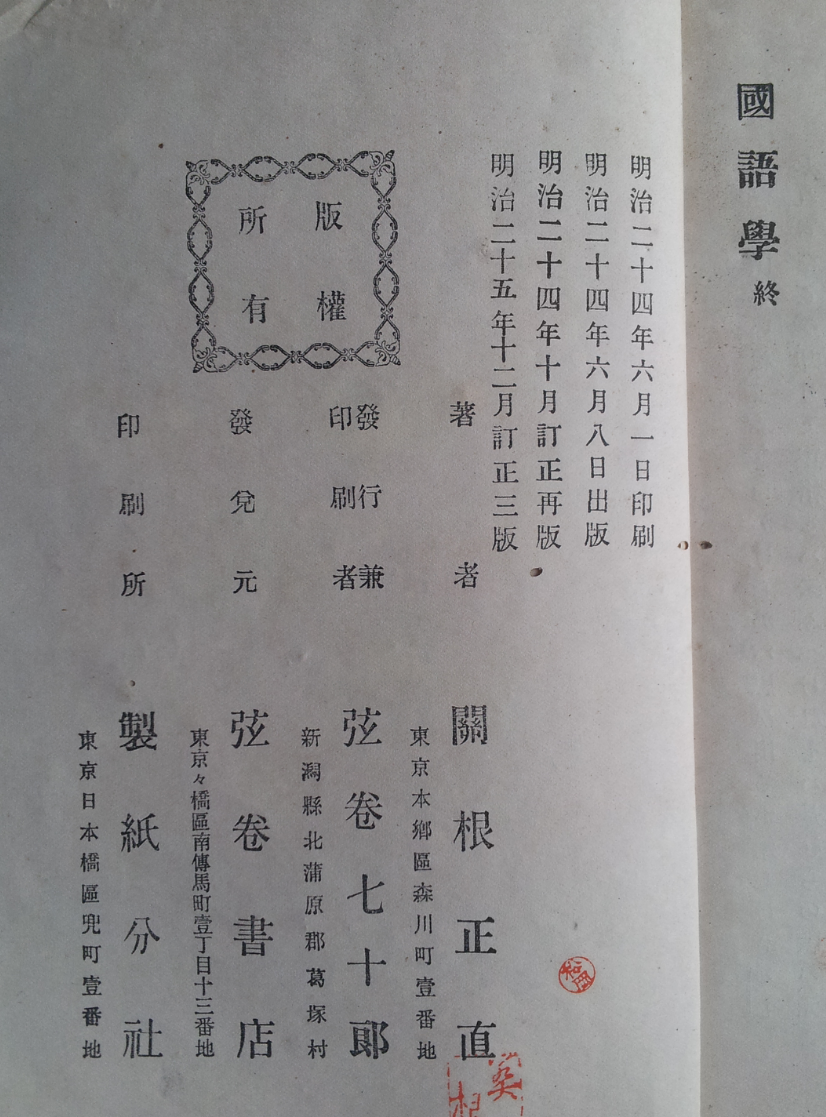 國語學終
明治二十四年六月一日印刷
明治二十四年六月八日出版
明治二十四年十月訂正再版
明治二十五年十二月訂正三版
版權
所有
著者
關根正直
東京本鄕區森川町壹番地
發行兼
印刷者
弦卷七十郞
新潟縣北蒲原郡葛塚村
發兌元
弦卷書店
東京々橋區南傳馬町壹丁目十三番地
印刷所
製紙分社
東京日本橋區兜町壹番地